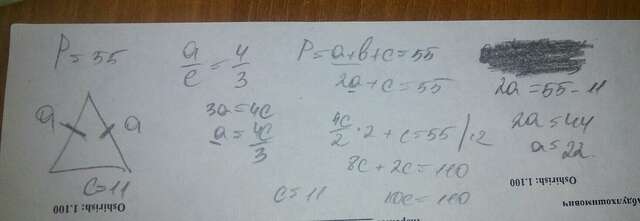 P = 55
a
a
c = 11
a/c = 4/3
3a = 4c
a = 4c/3
P = a+b+c = 55
2a + c = 55
4c/2 · 2 + c = 55 | ·2
8c + 2c = 110
c = 11
10c = 110
2a = 55 - 11
2a = 44
a = 22
Oshirish: 1.100
Oshirish: 1.100